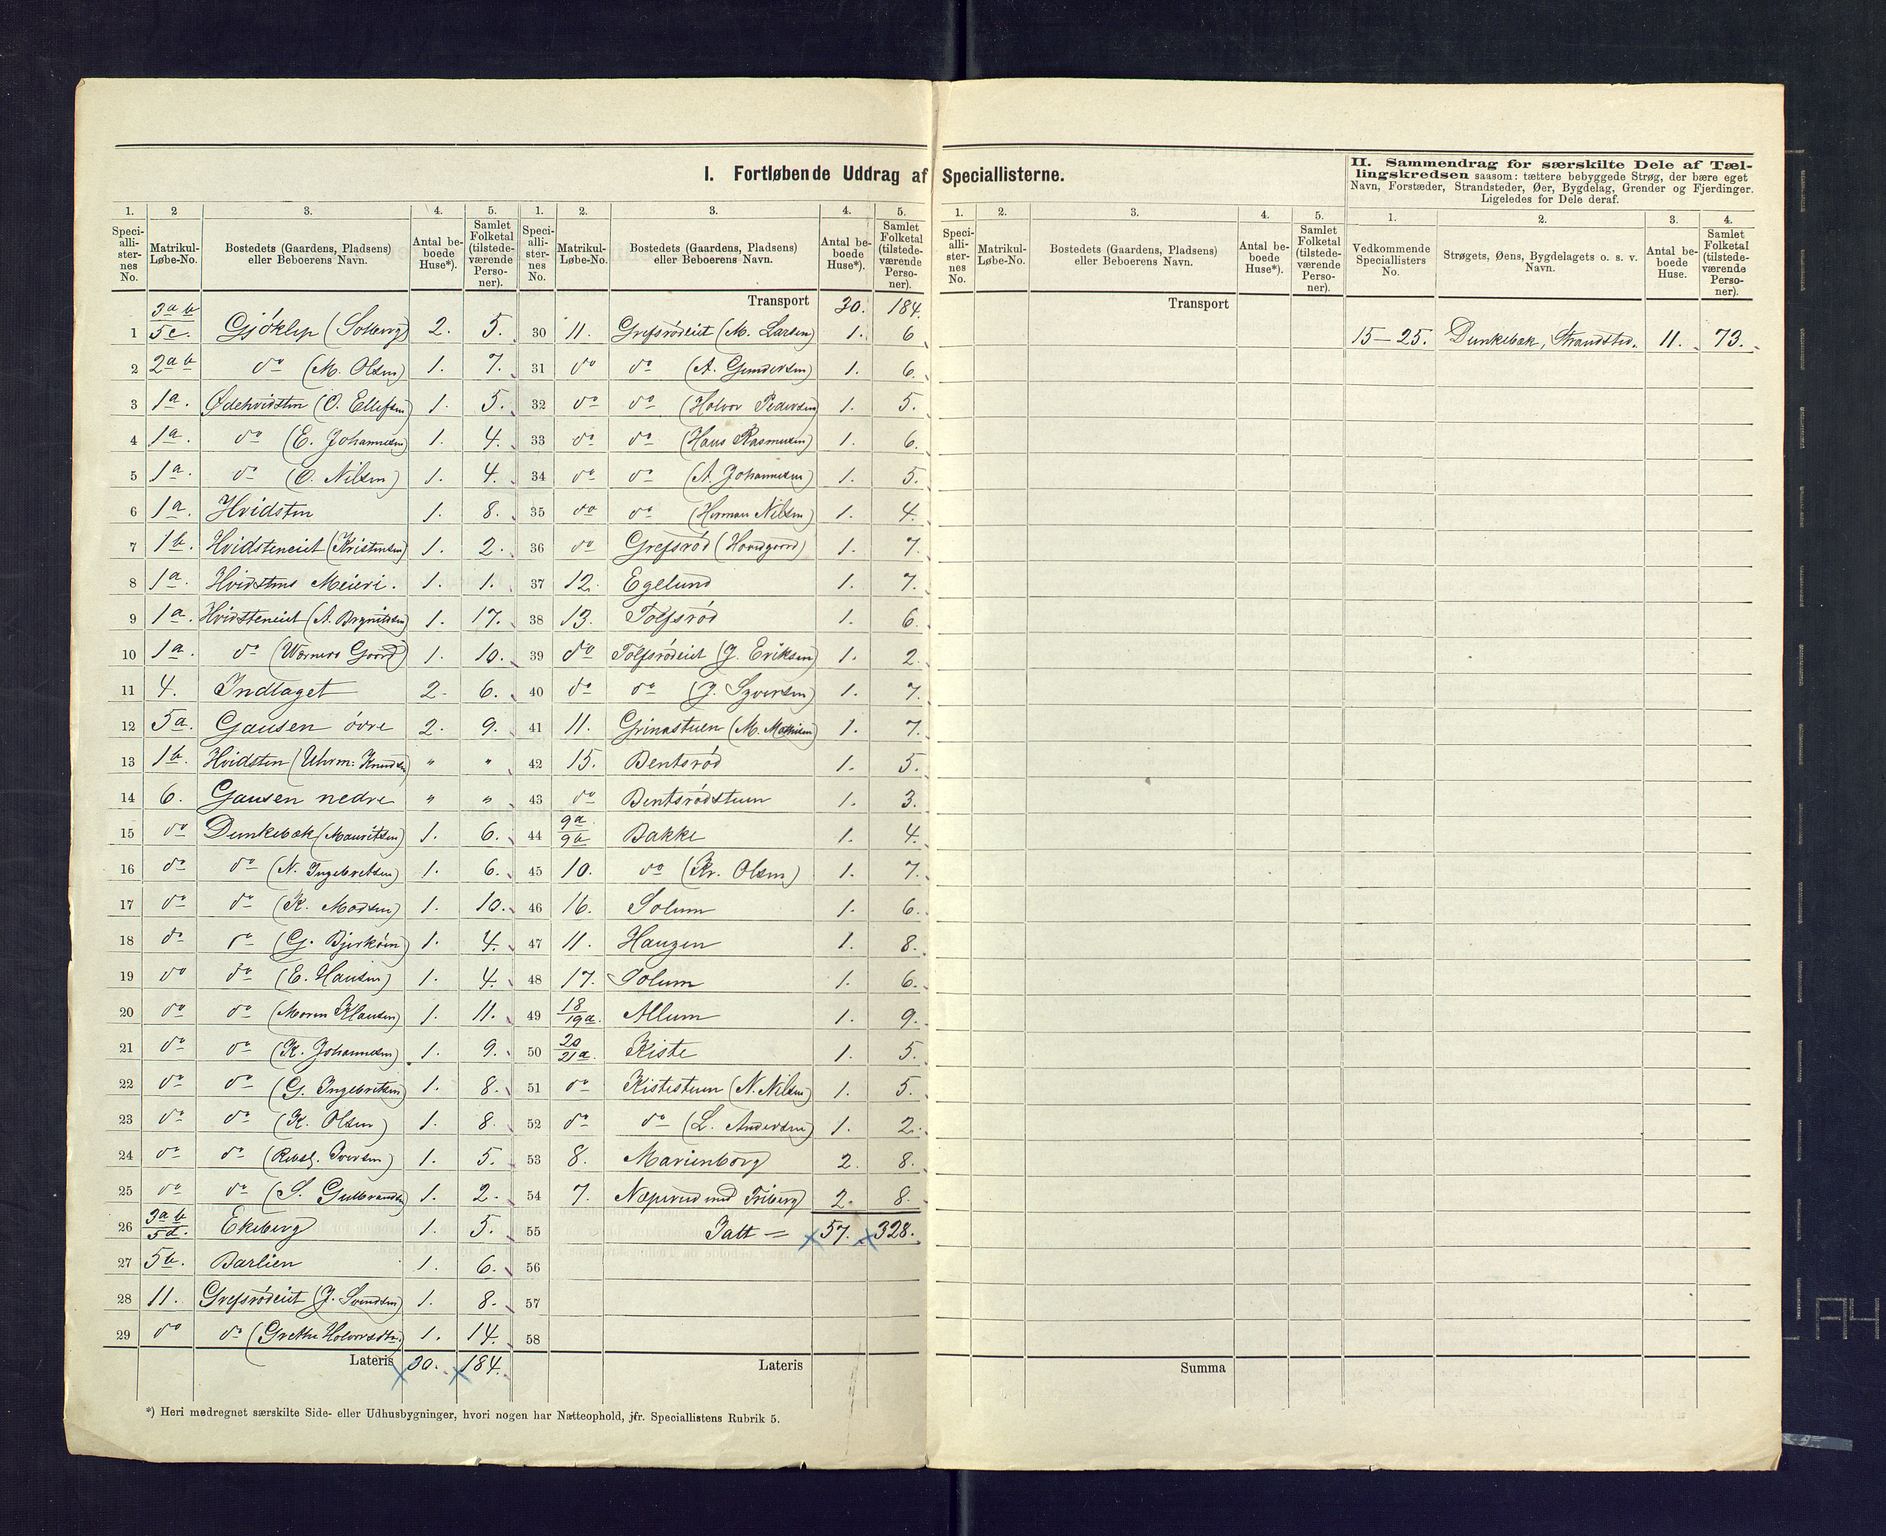 I. Fortløbende Uddrag af Speciallisterne.
II. Sammendrag for særskilte Dele af Tæl-
lingskredsen saasom: tættere bebyggede Strøg, der bære eget
Navn, Forstæder, Strandsteder, Øer, Bygdelag, Grender og Fjerdinger.
Ligeledes for Dele deraf.
1. 2 3. 4. 5. 1. 2. 3. 4. 5. 1. 2. 3. 4. 5. 1. 2. 3. 4.
Speciallisternes No. Matrikul-Løbe-No. Bostedets (Gaardens, Pladsens) eller Beboerens Navn. Antal beboede Huse*). Samlet Folketal (tilstedeværende Personer).
Speciallisternes No. Matrikul-Løbe-No. Bostedets (Gaardens, Pladsens) eller Beboerens Navn. Antal beboede Huse*). Samlet Folketal (tilstedeværende Personer).
Speciallisternes No. Matrikul-Løbe-No. Bostedets (Gaardens, Pladsens) eller Beboerens Navn. Antal beboede Huse*). Samlet Folketal (tilstedeværende Personer).
Vedkommende Speciallisters No. Strøgets, Øens, Bygdelagets o. s. v. Navn. Antal beboede Huse. Samlet Folketal (tilstedeværende Personer).
1 3ab/5c Gjøklep (Solberg) 2. 5.
2 2ab do (M. Olsen) 1. 7.
3 1a. Ødehvidsten (O. Ellefsen) 1. 5.
4 1a. do (E. Johannesen) 1. 4.
5 1a do (O. Nilsen) 1. 4.
6 1a. Hvidsten 1. 8.
7 1b. Hvidsteneiet (Kristensen) 1. 2.
8 1a. Hvidstens Meieri. 1. 1.
9 1a. Hvidsteneiet (A. Bryntsen) 1. 17.
10 1a. do (Werners Gaard) 1. 10.
11 4. Indlaget 2. 6.
12 5a. Gausen øvre 2. 9.
13 1b. Hvidsten (Uhrm: Knudsen) " "
14 6. Gausen nedre " "
15 do Dunkebæk (Mauritsen) 1. 6.
16 do do (N. Ingebretsen) 1. 6.
17 do do (K. Madsen) 1. 10.
18 do do (G. Bjerkøen) 1. 4.
19 do do (E. Hansen) 1. 4.
20 do do (Maren Klausen) 1. 11.
21 do do (K. Johannesen) 1. 9.
22 do do (G. Ingebritsen) 1. 8.
23 do do (K. Olsen) 1. 8.
24 do do (Rebsl. Iversen) 1. 5.
25 do do (S. Gulbrandsen) 1. 2.
26 3ab/5d. Ekeberg 1. 5.
27 5b. Barlien 1. 6.
28 11. Grefsrødeiet (J. Svendsen) 1. 8.
29 do do (Grethe Halvorsdtr.) 1. 14.
Lateris 30. 184.
Transport 30. 184.
30 11. Grefsrødeiet (M. Larsen) 1. 6
31 do do (A. Gundersen) 1. 6.
32 do do (Halvor Pedersen) 1. 5.
33 do do (Hans Rasmusen) 1. 6.
34 do do (A. Johannesen) 1. 5.
35 do do (Herman Nilsen) 1. 4.
36 do Grefsrød (Hovedgaard) 1. 7.
37 12. Egelund 1. 7.
38 13. Tolfsrød 1. 6.
39 do Tolfsrødeiet (J. Eriksen) 1. 2.
40 do do (J. Syversen) 1. 7.
41 11. Grinastuen (M. Mathisen) 1. 7.
42 15. Bentsrød 1. 5.
43 do Bentsrødstuen 1. 3.
44 9a/9b Bakke 1. 4.
45 10. do (Kr. Olsen) 1. 7.
46 16. Solum 1. 6.
47 11. Haugen 1. 8.
48 17. Solum 1. 6.
49 18/19a. Allum 1. 9.
50 20/21a. Kiste 1. 5.
51 do Kistestuen (N. Nilsen) 1. 5.
52 do do (L. Andersen) 1. 2.
53 8. Marienborg 2. 8.
54 7. Næperud med Friberg 2. 8.
55 Ialt = 57. 328.
56
57
58
Lateris
Transport
Summa
15–25. Dunkebæk, Strandsted. 11. 73.
*) Heri medregnet særskilte Side- eller Udhusbygninger, hvori nogen har Natteophold, jfr. Speciallistens Rubrik 5.
A4